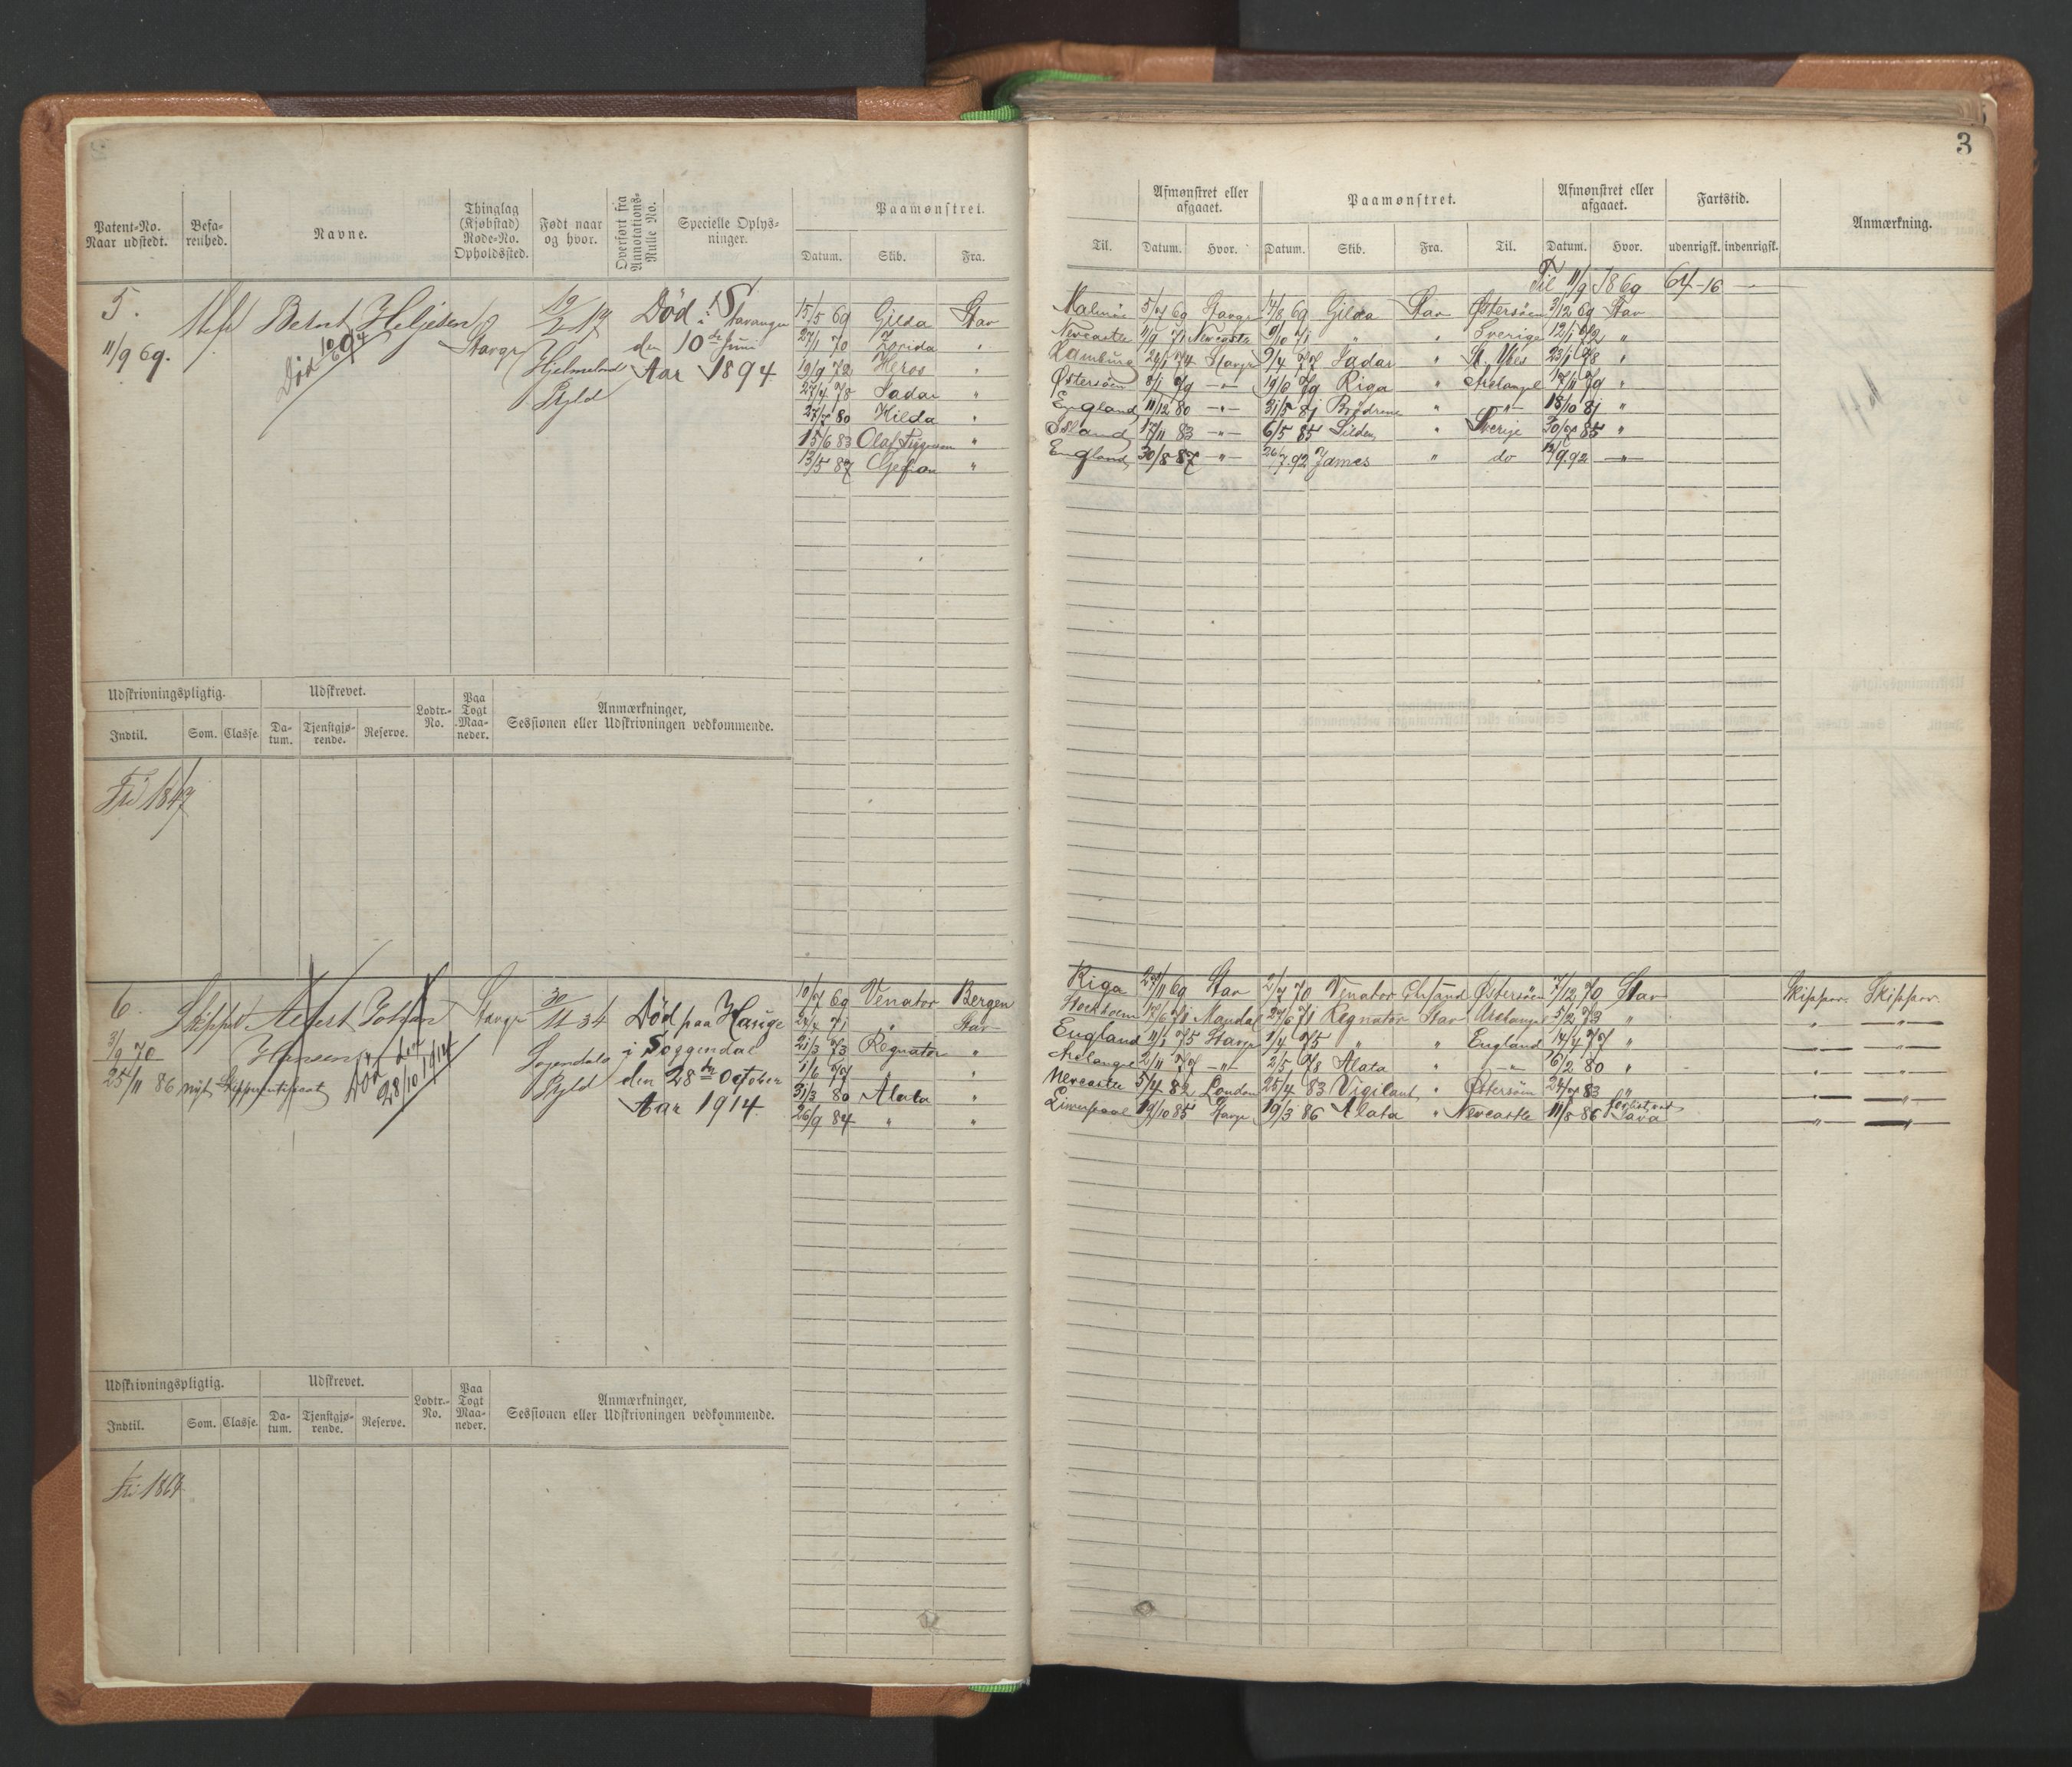 3
Patent-No. Naar udstedt.
Befa-renhed.
Navne.
Thinglag (Kjøbstad) Rode-No. Opholdssted.
Født naar og hvor.
Overført fra Annotations-Rulle No.
Specielle Oplys-ninger.
Paamønstret.
Datum. Skib. Fra.
Til.
Afmønstret eller afgaaet.
Datum. Hvor.
Paamønstret.
Datum. Skib. Fra. Til.
Afmønstret eller afgaaet.
Datum. Hvor.
Fartstid.
udenrigsk. indenrigsk.
Anmærkning.
Til 11/9 1869 64-16 —
5.
11/9 69.
Bernt Heljesen
Død 10/6 94
Stavgr
19/2 19
Hjelmeland
Ryld
Død i Stavanger
den 10de Juni
Aar 1894
15/5 69 Gilda Stav
27/1 70 Zorida "
19/9 72 Heros "
27/4 78 Jadar "
27/7 80 Hilda "
15/6 83 Olaf Trygvesen "
13/5 87 Gefion "
Malmö 5/7 69 Stavgr 14/8 69 Gilda Stav Østersøen 3/12 69 Stav
Newcastle 11/9 71 Newcastle 9/10 71 " " Sverige 12/1 72 "
Hamburg 24/1 74 Stavgr 9/4 77 Jadar " St. Ybes 23/1 78 "
Østersøen 8/1 79 —"— 19/6 79 Riga " Archangel 17/11 79 "
England 11/12 80 —"— 31/5 81 Brødrene " —"— 18/10 81 "
Island 17/11 83 —"— 6/5 85 Silden " Sverige 30/7 85 "
England 30/8 87 —"— 26/7 92 James " do 12/9 92 —"—
Udskrivningspligtig. Udskrevet. Lodtr.-No. Paa Togt Maa-neder. Anmærkninger, Sessionen eller Udskrivningen vedkommende.
Indtil. Som. Classe. Da-tum. Tjenstgjø-rende. Reserve.
Fri 1847
6.
3/9 70
25/11 86 nyt Skippercertificat
Skippr
Johan
Hansen
Død den 28/10 1914
Stavgr
30/11 34
Sogendals
Ryld
Død paa Hauge
i Soggendal
den 28de October
Aar 1914
10/7 69 Venator Bergen
24/4 71 " Stav
21/3 73 Regnator "
1/6 77 " "
31/3 80 Alata "
26/9 84 " "
Riga 27/11 69 Stav 2/7 70 Venator Chrsand Østersøen 7/12 70 Stav Skipper Skipper
Stockholm 12/6 71 Mandal 27/6 71 Regnator Stav Archangel 5/2 73 " " —"—
England 11/1 75 Stavgr 1/4 75 " " England 14/4 77 " —"— —"—
Archangel 2/11 77 —"— 2/5 78 Alata " —"— 16/2 80 " —"— —"—
Newcastle 5/4 82 London 25/4 83 Vigilant " Østersøen 24/7 83 " —"— —"—
Liverpool 19/10 85 Stavgr 19/3 86 Alata " Newcastle 11/8 86 forlist ved Java —"— —"—
Udskrivningspligtig. Udskrevet. Lodtr.-No. Paa Togt Maa-neder. Anmærkninger, Sessionen eller Udskrivningen vedkommende.
Indtil. Som. Classe. Da-tum. Tjenstgjø-rende. Reserve.
Fri 1864